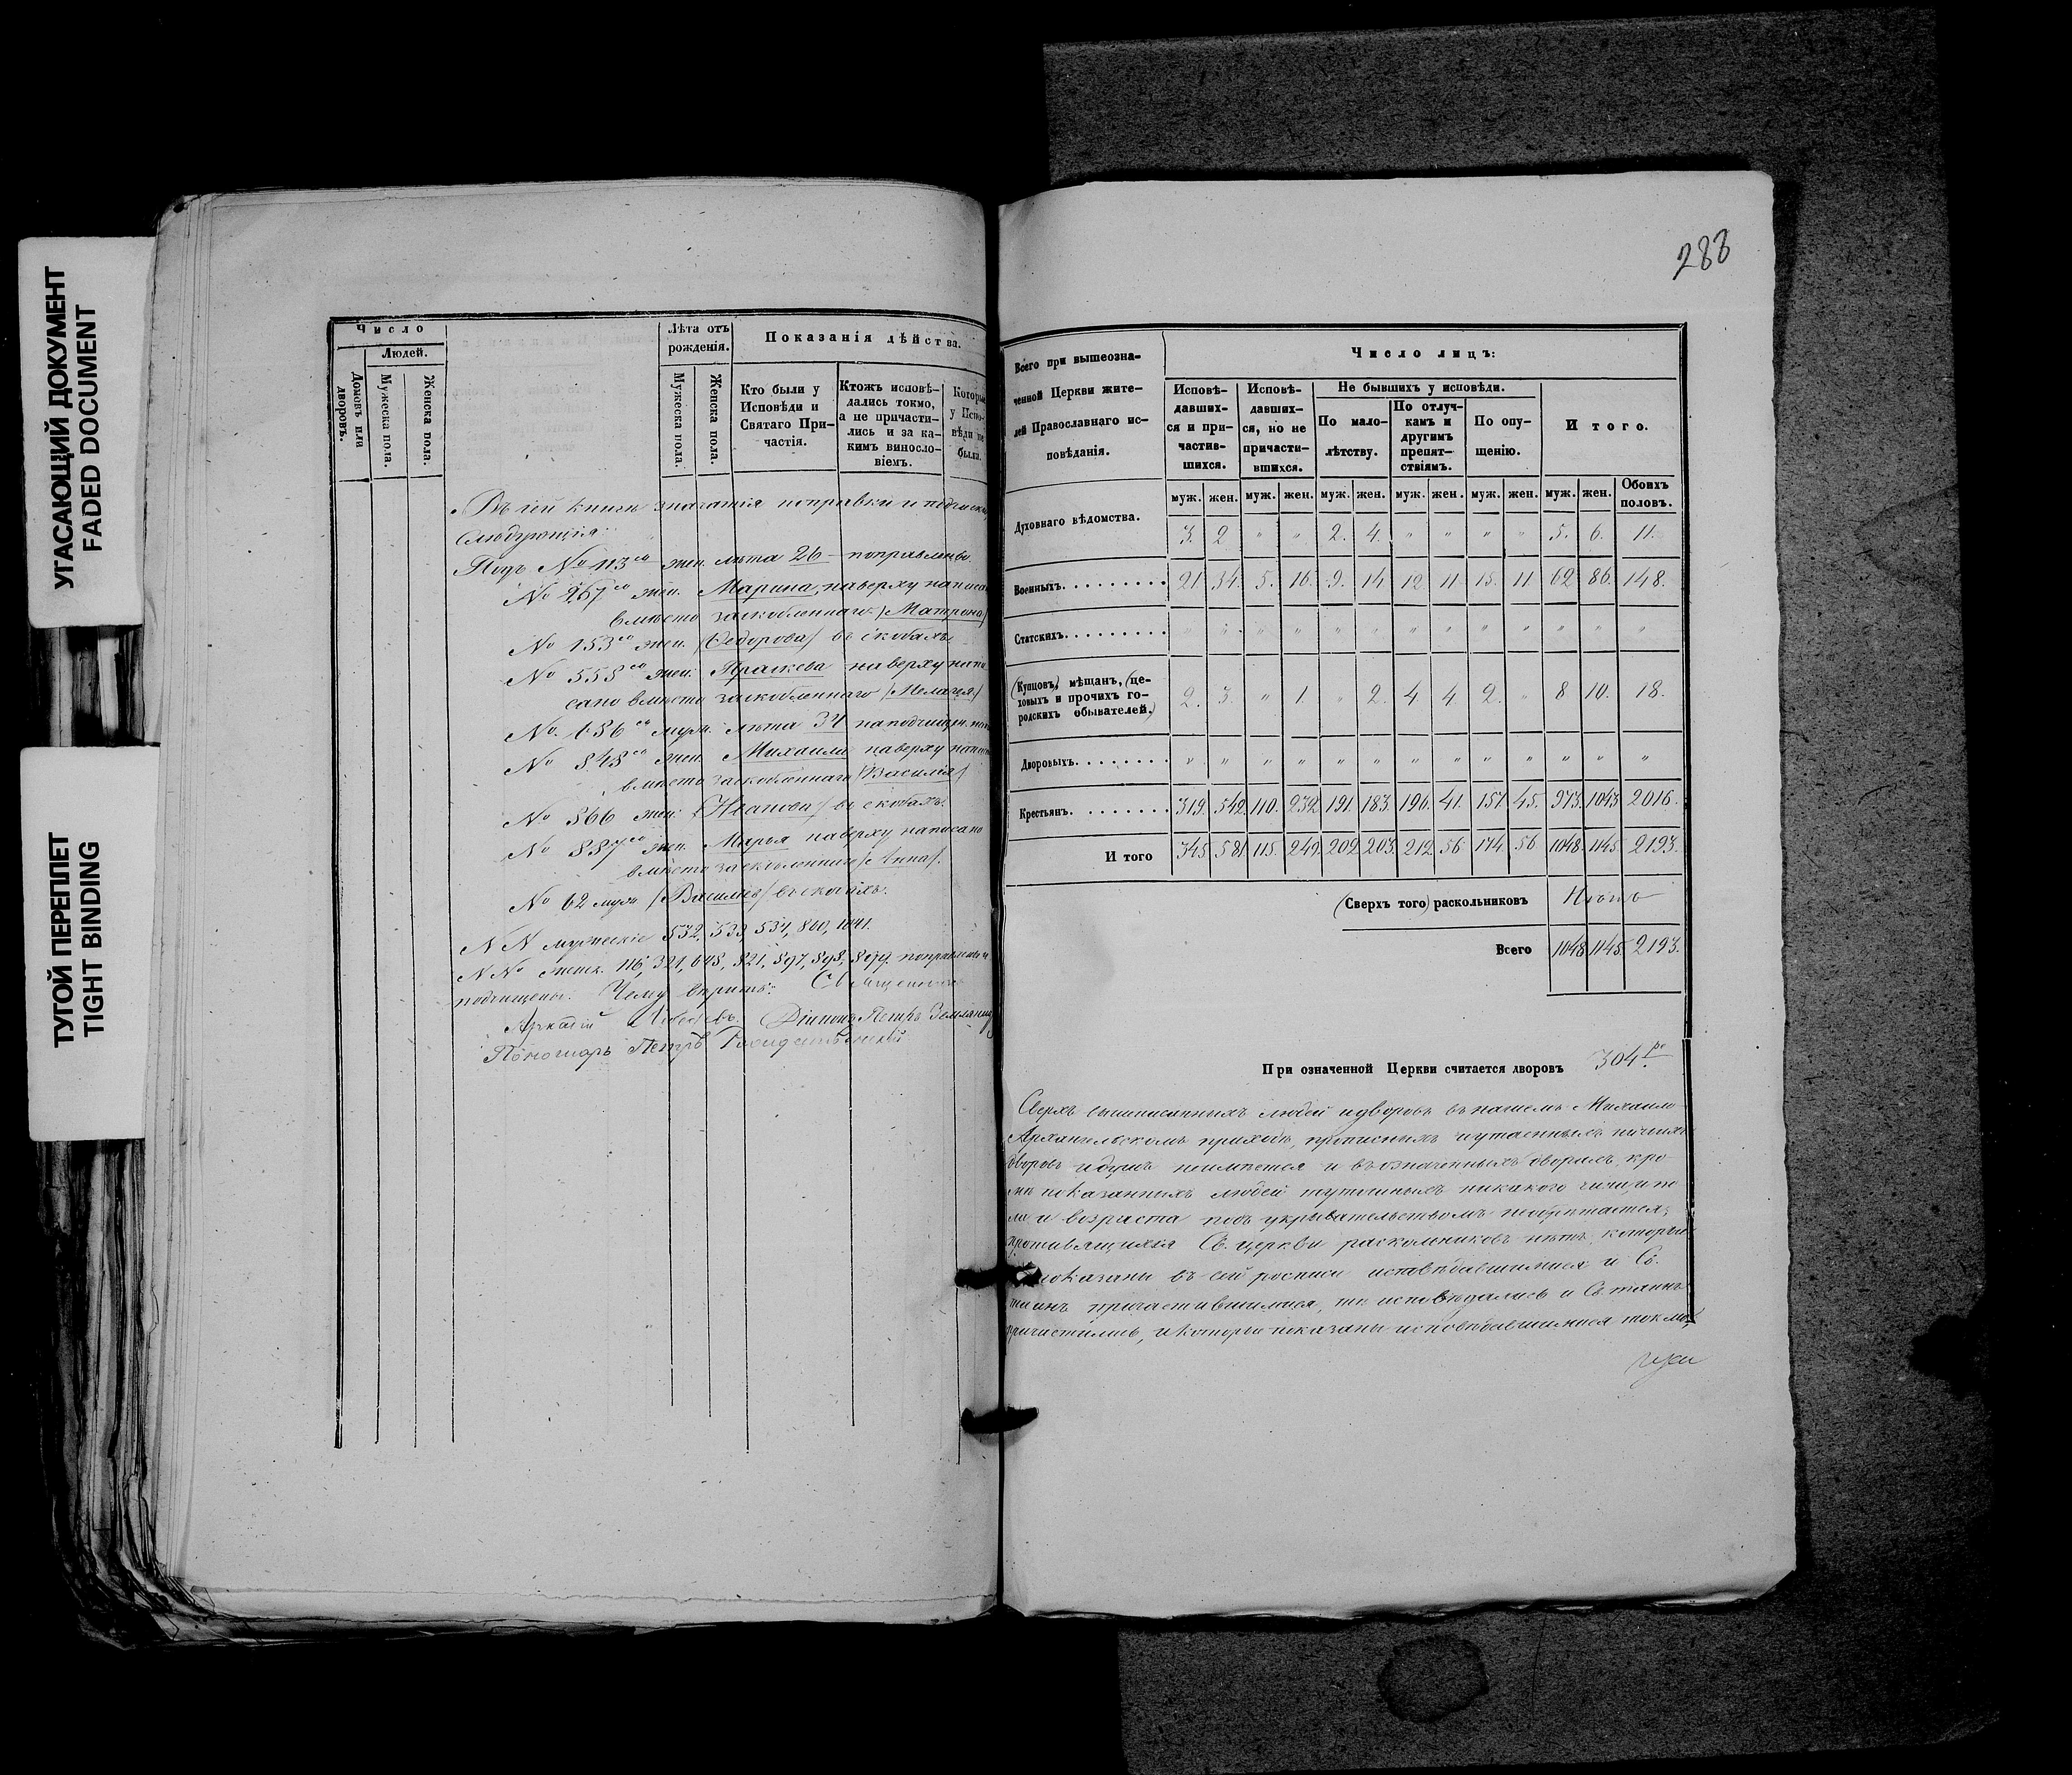 УГАСАЮЩИЙ ДОКУМЕНТ
FADED DOCUMENT
ТУГОЙ ПЕРЕПЛЕТ
TIGHT BINDING
Число
Людей.
Домовъ или дворовъ.
Мужеска пола.
Женска пола.
Лѣта отъ
рожденія.
Мужеска пола.
Женска пола.
Показанія дѣйства.
Кто были у
Исповѣди и
Святаго При-
частія.
Ктожъ исповѣ-
дались токмо,
а не причасти-
лись и за ка-
кимъ винosло-
віемъ.
Которые
у Испо-
вѣди не
были.
Въ сей книгѣ значатся поправки и подчистки
слѣдующія:
Подъ № 113 жен. лѣта 26 - поправлено.
№ 267 жен. Марина, наверху написано
вмѣсто заскобленнаго /Матрона/
№ 153 жен. /Ѳедорова/ въ скобахъ.
№ 558 жен. Праскева наверху напи
сано вмѣсто заскобленнаго /Пелагея/
№ 686 муж. лѣта 34 на подчищен.
№ 848 жен. Михаила наверху
вмѣсто заскобленнаго /Василія/
№ 866 жен. /Иванова/ въ скобахъ.
№ 887 жен. Марья наверху написано
вмѣсто /Анна/.
№ 62 муж /Васильевъ/ въ скобахъ.
№№ мужескіе 532, 533, 534, 800, 1041.
№№ женск. 116, 321, 648, 821, 897, 898, 899 поправлены и
подчищены. Чему вѣрить: Священникъ
Діаконъ Петръ
Пономарь Петръ Рождественскій
288
Всего при вышеозна-
ченной Церкви жите-
лей Православнаго ис-
повѣданія.
Число лицъ:
Исповѣ-
давших-
ся и при-
частив-
шихся.
Исповѣ-
давших-
ся, но не
причасти-
вшихся.
Не бывшихъ у исповѣди.
По мало-
лѣтству.
По отлуч-
камъ и
другимъ
препят-
ствіямъ.
По опу-
щенію.
Итого.
муж. жен. муж. жен. муж. жен. муж. жен. муж. жен. муж. жен. Обоихъ половъ.
Духовнаго вѣдомства. 3. 2 " " 2. 4. " " " " 5. 6. 11.
Военныхъ. 21. 34. 5. 16. 9. 14. 12 11. 15. 11. 62. 86. 148.
Статскихъ. " " " " " " " " " " " " "
(Купцовъ,) мѣщанъ, (це-
ховыхъ и прочихъ го-
родскихъ обывателей.) 2. 3. " 1. " 2. 4 4 2. " 8 10. 18.
Дворовыхъ. " " " " " " " " " " " " "
Крестьянъ. 319. 542. 110. 232. 191. 183. 196. 41. 157. 45. 973. 1043. 2016.
И того 345 581 115. 249. 202. 203. 212. 56. 174 56 1048. 1145. 2193.
(Сверхъ того) раскольниковъ Нѣтъ
Всего 1048 1145. 2193.
При означенной Церкви считается дворовъ 304.
Сверхъ вышеписанныхъ людей и дворовъ въ нашемъ Михаило
Архангельскомъ приходѣ, прописныхъ и утаенныхъ ничьихъ
дворовъ и душъ неимѣется и въ означенныхъ дворахъ, кро
мѣ показанныхъ людей никакого чина, по
ла и возраста подъ укрывательствомъ необрѣтается;
противящихся Св. церкви раскольниковъ нѣтъ, которые
показаны въ сей росписи исповѣдавшимися и Св.
таинъ причастившимися, тѣ исповѣдались и Св. таинъ
причастились, и которые показаны исповѣдавшимися токмо,